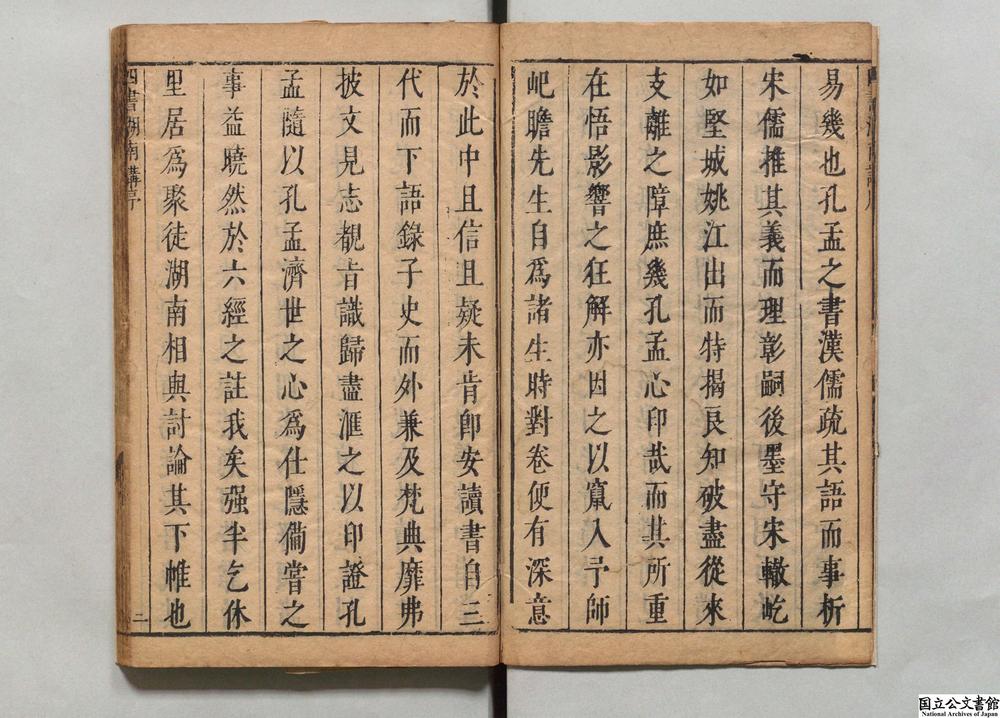 易幾也孔孟之書漢儒疏其語而事析
宋儒推其義而理彰嗣後墨守宋轍屹
如堅城姚江出而特揭良知破盡從來
支離之障庶幾孔孟心印哉而其所重
在悟影響之狂解亦因之以竄入予師
屺瞻先生自爲諸生時對卷便有深意
於此中且信且疑未肯卽安讀書自三
代而下語錄子史而外兼及梵典靡弗
披文見志覩旨識歸盡滙之以印證孔
孟隨以孔孟濟世之心爲仕隱備嘗之
事益曉然於六經之註我矣强半乞休
里居爲聚徒湖南相與討論其下帷也
四書湖南講序 二
国立公文書館
National Archives of Japan